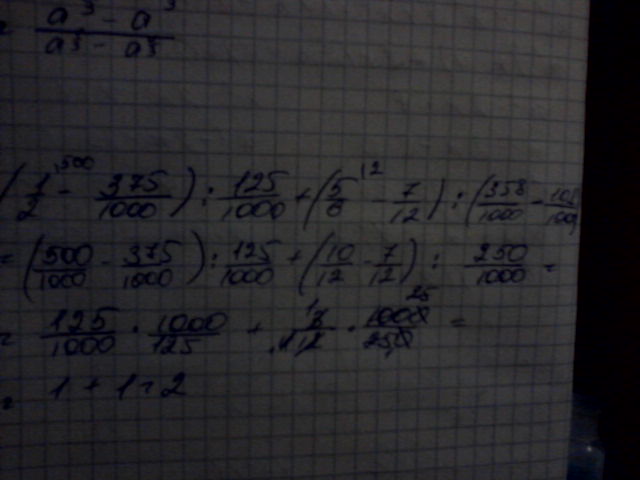 = (a³ - a³)/(a³ - a³)
(1/2 - 375/1000) : 125/1000 + (5/6 - 7/12) : (358/1000 - 108/1000
= (500/1000 - 375/1000) : 125/1000 + (10/12 - 7/12) : 250/1000 =
= 125/1000 · 1000/125 + 3/12 · 1000/250 =
= 1 + 1 = 2